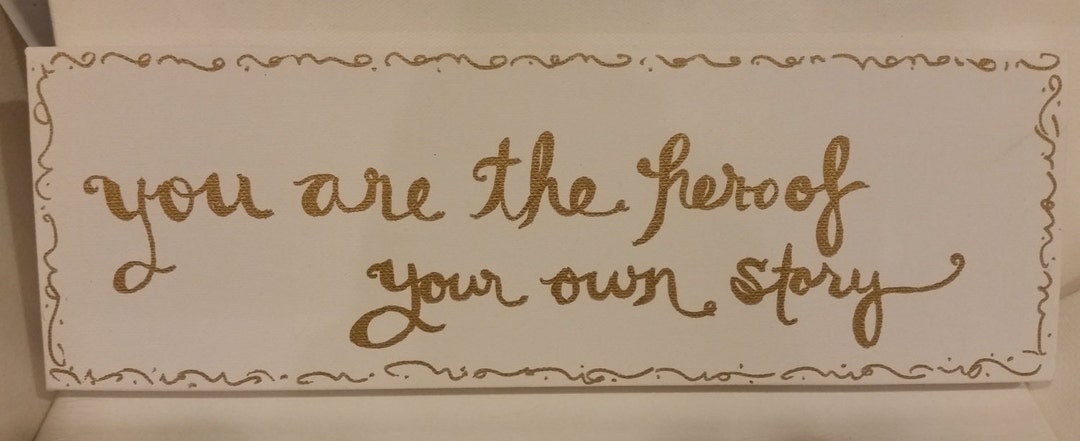 you are the hero of
your own story